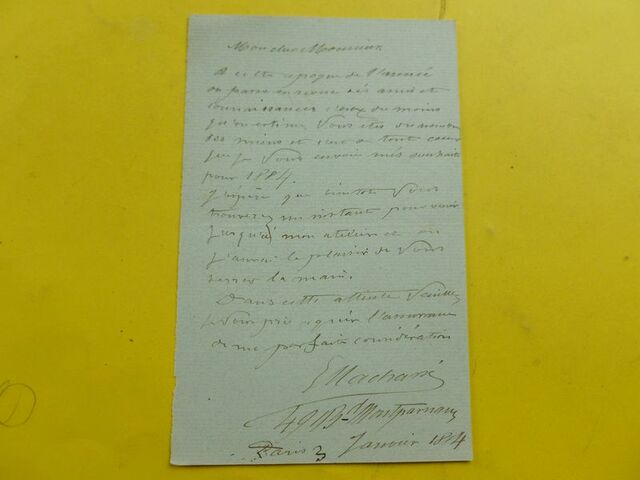 Mon cher Monsieur
A cette epoque de l'année
on passe en revue ses amis et
connaissances ceux du moins
qu'on estime, Vous etes du nombre
des miens et c'est de tout coeur
que je Vous envoie mes souhaits
pour 1884.
J'espère que bientot Vous
trouverez un instant pour venir
jusqu'à mon atelier et où
j'aurai le plaisir de Vous
serrer la main.
Dans cette attente Veuillez
je Vous prie agréer l'assurance
de ma parfaite considération
49 Bd Montparnasse
Paris 3 Janvier 1884